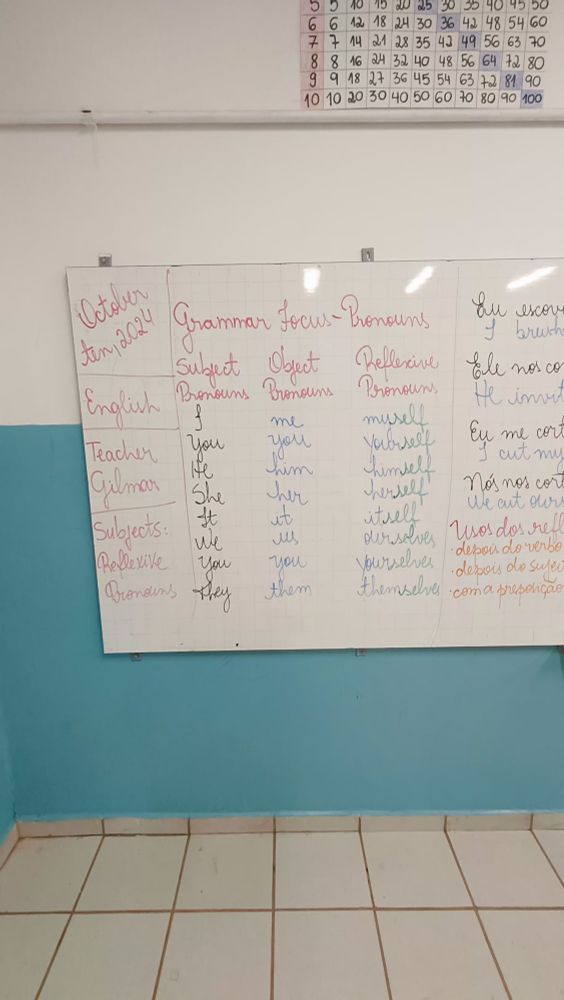 5 5 10 15 20 25 30 35 40 45 50
6 6 12 18 24 30 36 42 48 54 60
7 7 14 21 28 35 42 49 56 63 70
8 8 16 24 32 40 48 56 64 72 80
9 9 18 27 36 45 54 63 72 81 90
10 10 20 30 40 50 60 70 80 90 100
October
ten, 2024
English
Teacher
Gilmar
Subjects:
Reflexive
Pronouns
Grammar Focus - Pronouns
Subject Object Reflexive
Pronouns Pronouns Pronouns
I me myself
You you yourself
He him himself
She her herself
It it itself
We us ourselves
You you yourselves
They them themselves
Eu escov
I brush
Ele nos co
He invit
Eu me cort
I cut my
Nós nos cort
We cut ours
Usos dos refl
• depois do verbo
• depois do sujei
• com a preposição